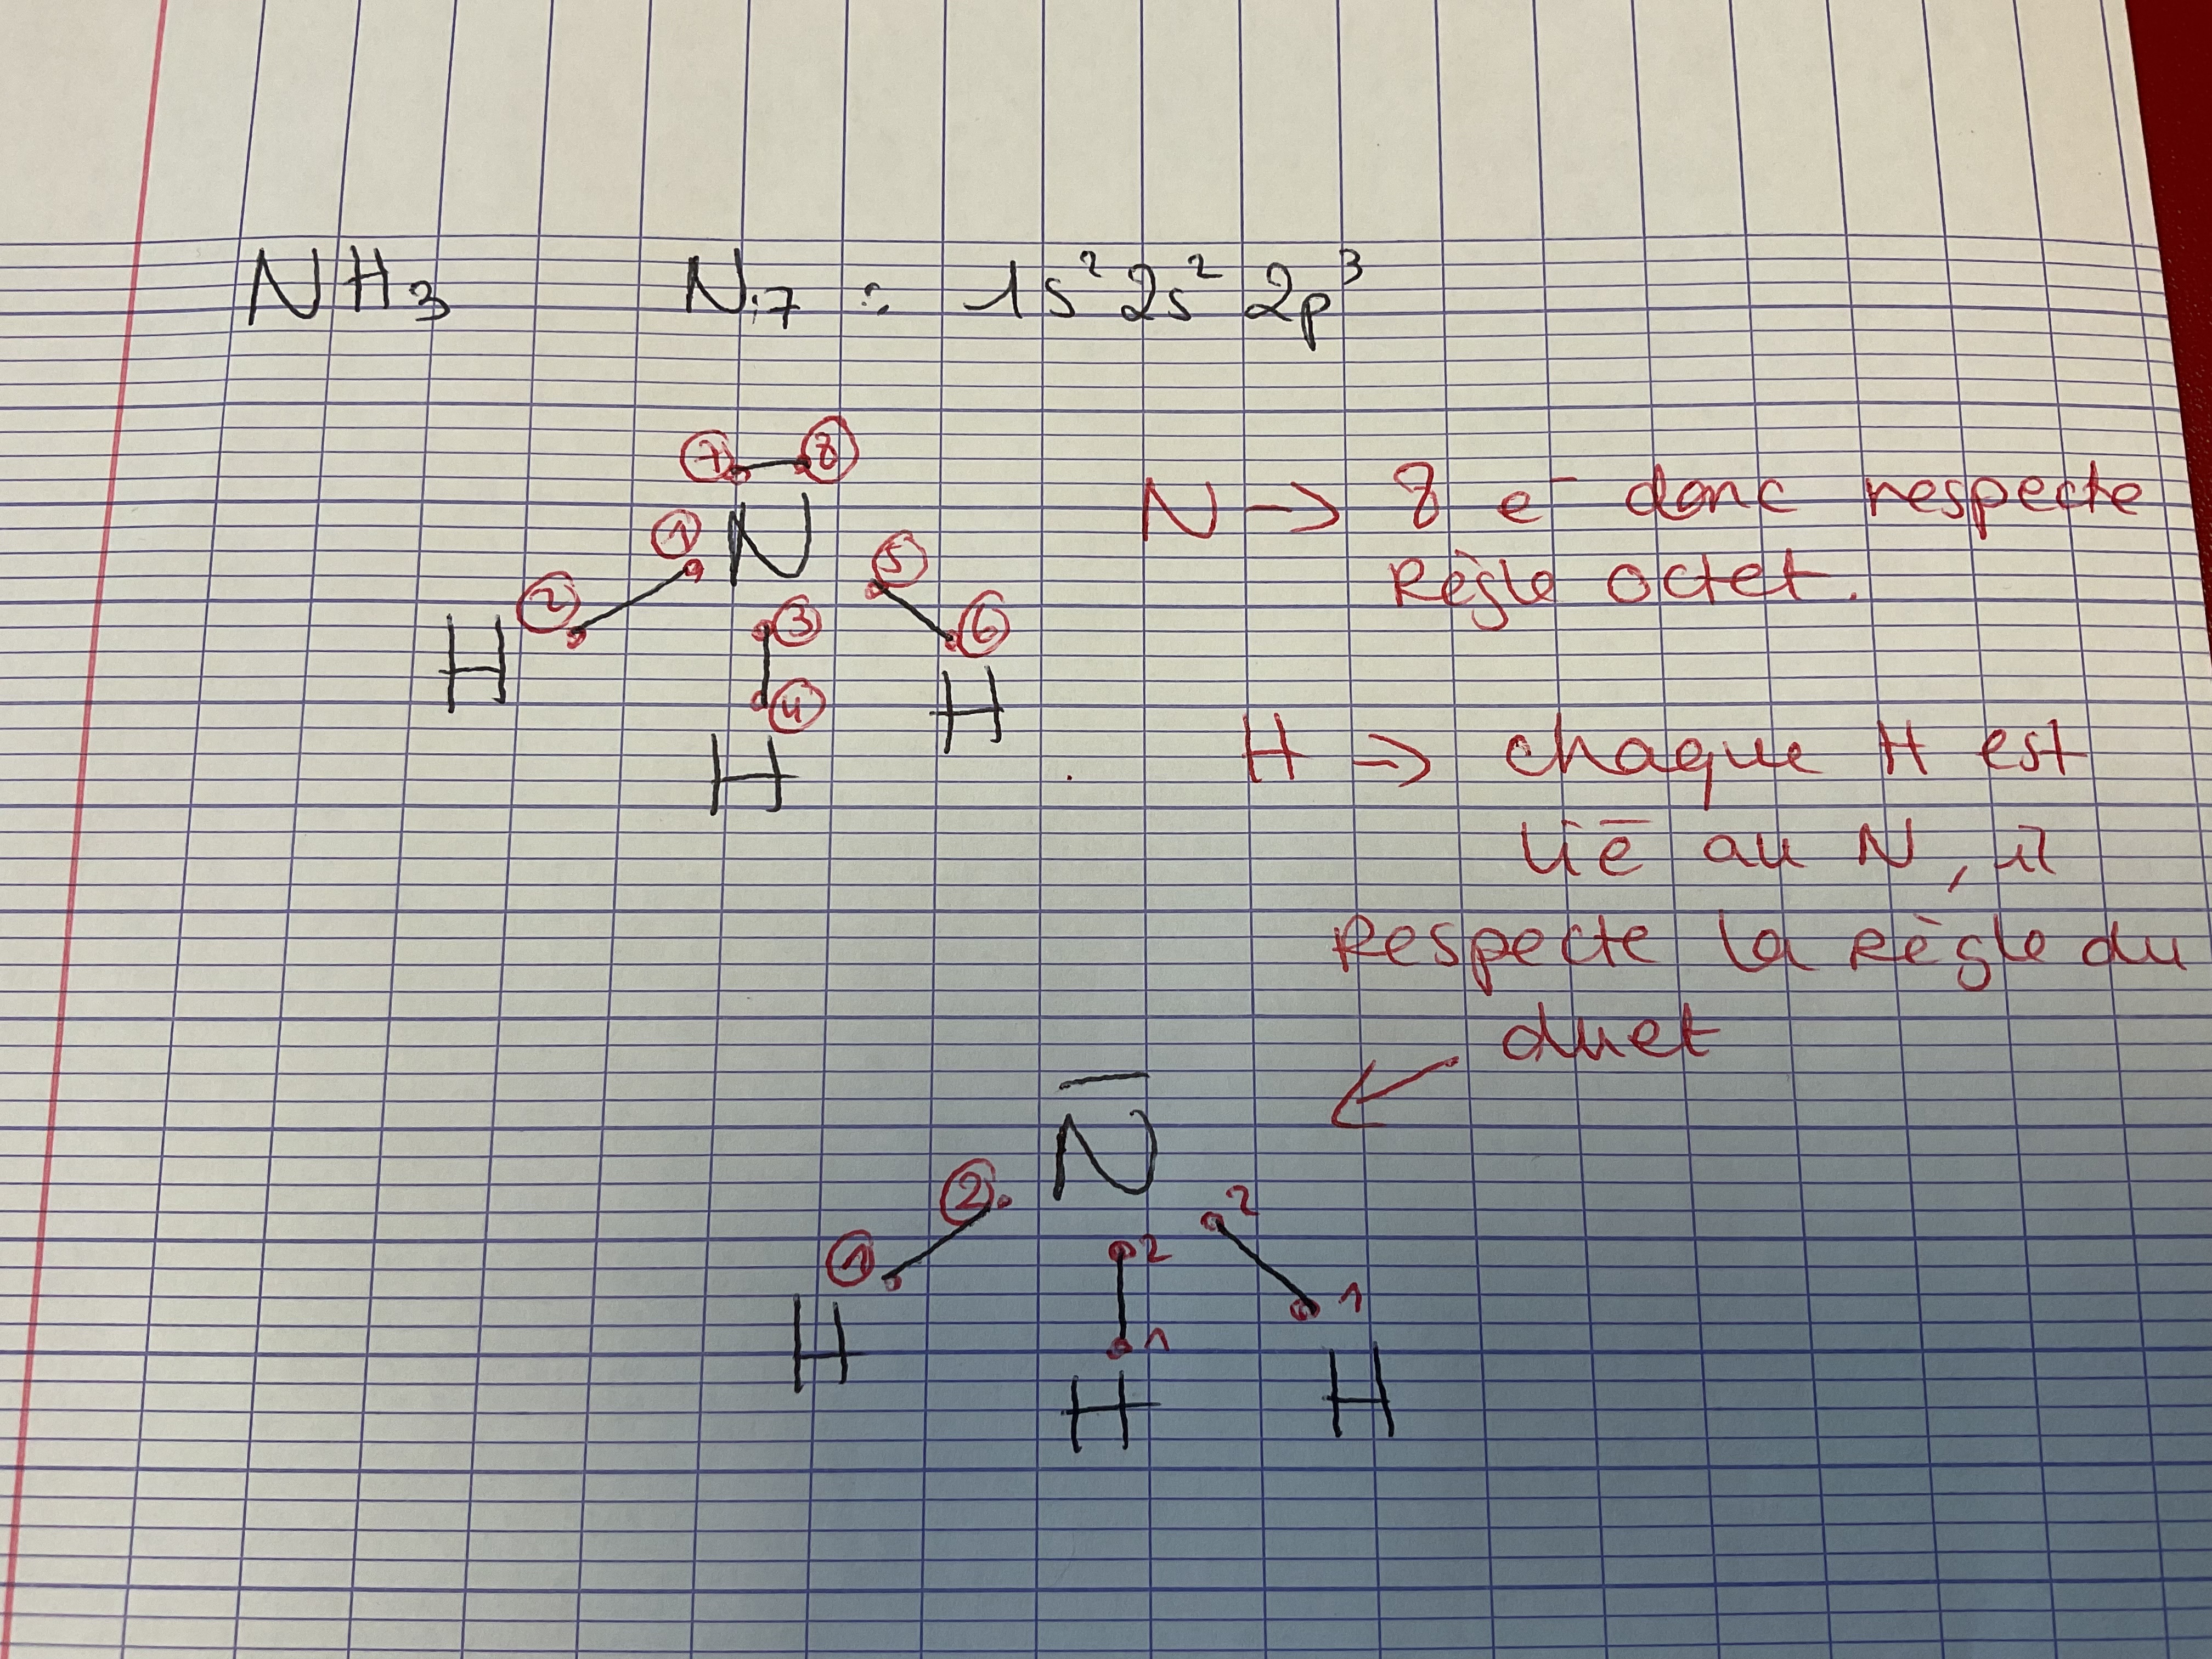 NH₃ N:7 : 1s² 2s² 2p³
⑦ ⑧
① N ⑤
② ③ ⑥
H ④ H
H
N → 8 e⁻ donc respecte
Règle octet.
H ⇒ chaque H est
lié au N, il
Respecte la Règle du
duet
N
② 2
① 2 1
H 1 H
H